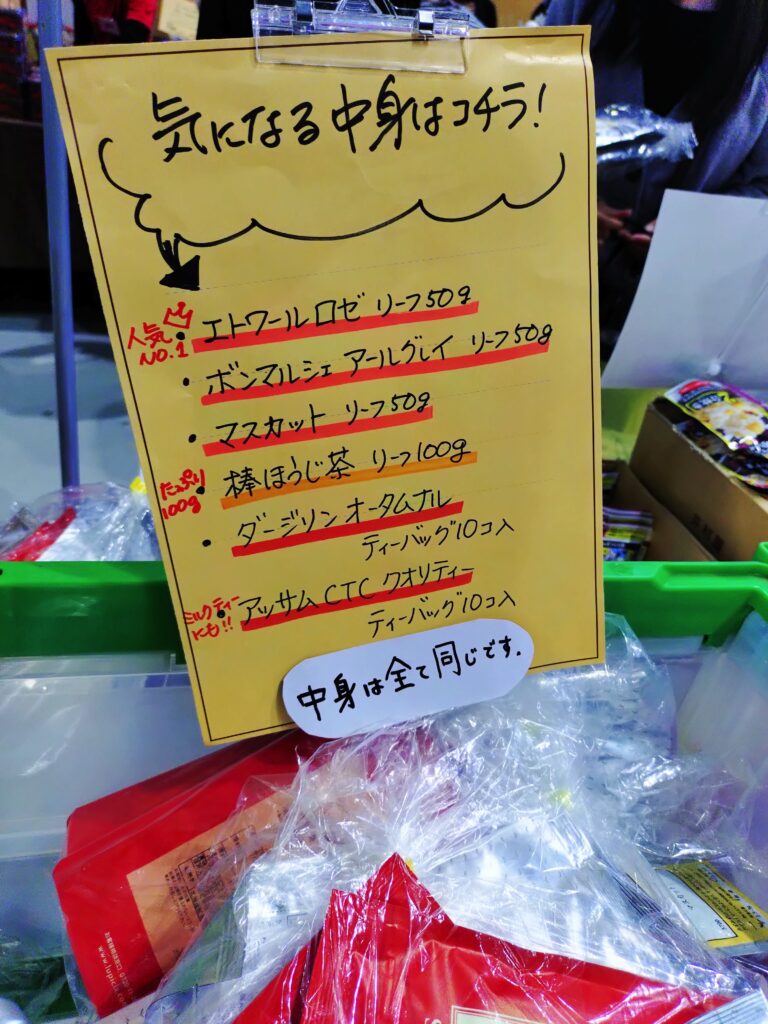 気になる中身はコチラ!
人気
NO.1
・エトワールロゼ リーフ50g
・ボンマルシェ アールグレイ リーフ50g
・マスカット リーフ50g
たっぷり
100g
・棒ほうじ茶 リーフ100g
・ダージリン オータムナル
ティーバッグ10コ入
ミルクティー
にも!!
・アッサムCTC クオリティー
ティーバッグ10コ入
中身は全て同じです.